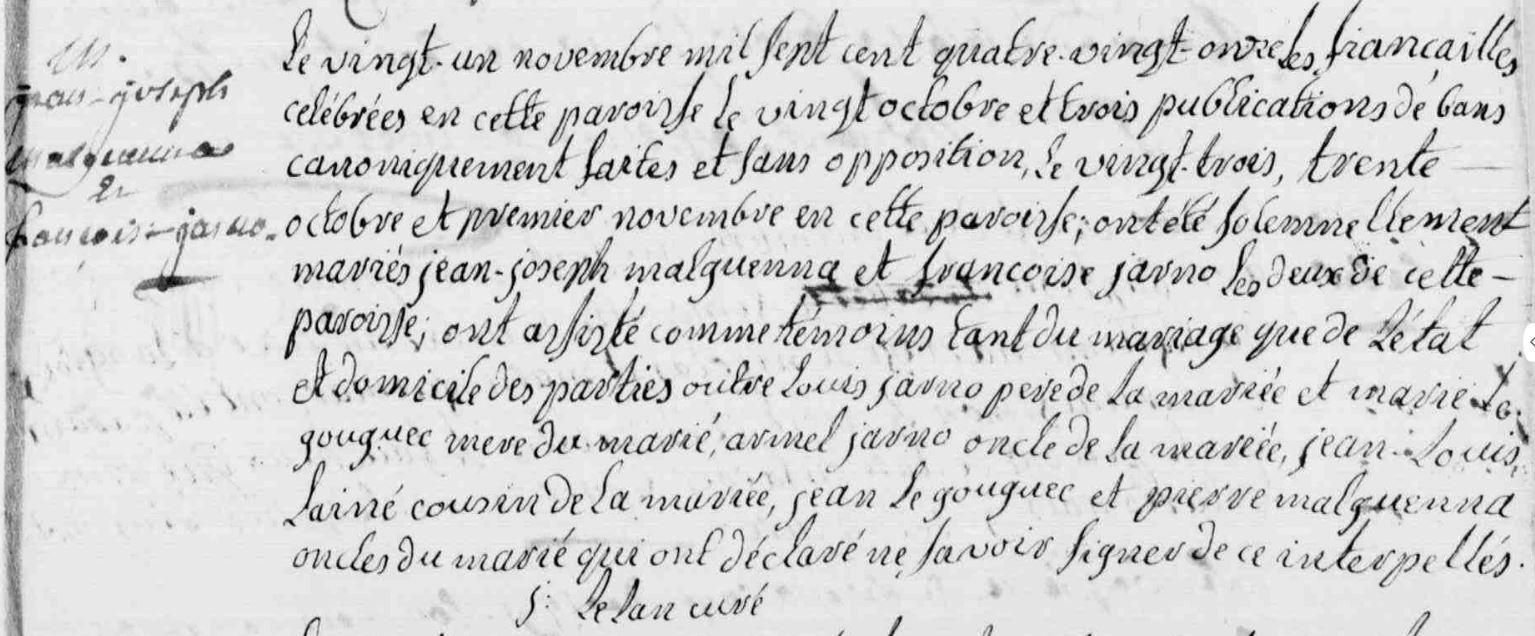 m.
jean-joseph
malguenna
et
françoise-jarno.
Le vingt-un novembre mil sept cent quatre-vingt-onze les fiançailles
celébrées en cette paroisse le vingt octobre et trois publications de bans
canoniquement faites et sans opposition, le vingt-trois, trente
octobre et premier novembre en cette paroisse; ont été solemnellement
mariés jean-joseph malguenna et francoise jarno les deux de cette
paroisse; ont assisté comme témoins tant du mariage que de l'état
et domicile des parties outre louis jarno pere de la mariée et marie le
gouguec mere du marié, armel jarno oncle de la mariée, jean-louis
lainé cousin de la mariée, jean le gouguec et pierre malguenna
oncles du marié qui ont déclaré ne savoir signer de ce interpellés.
j: Le lan curé